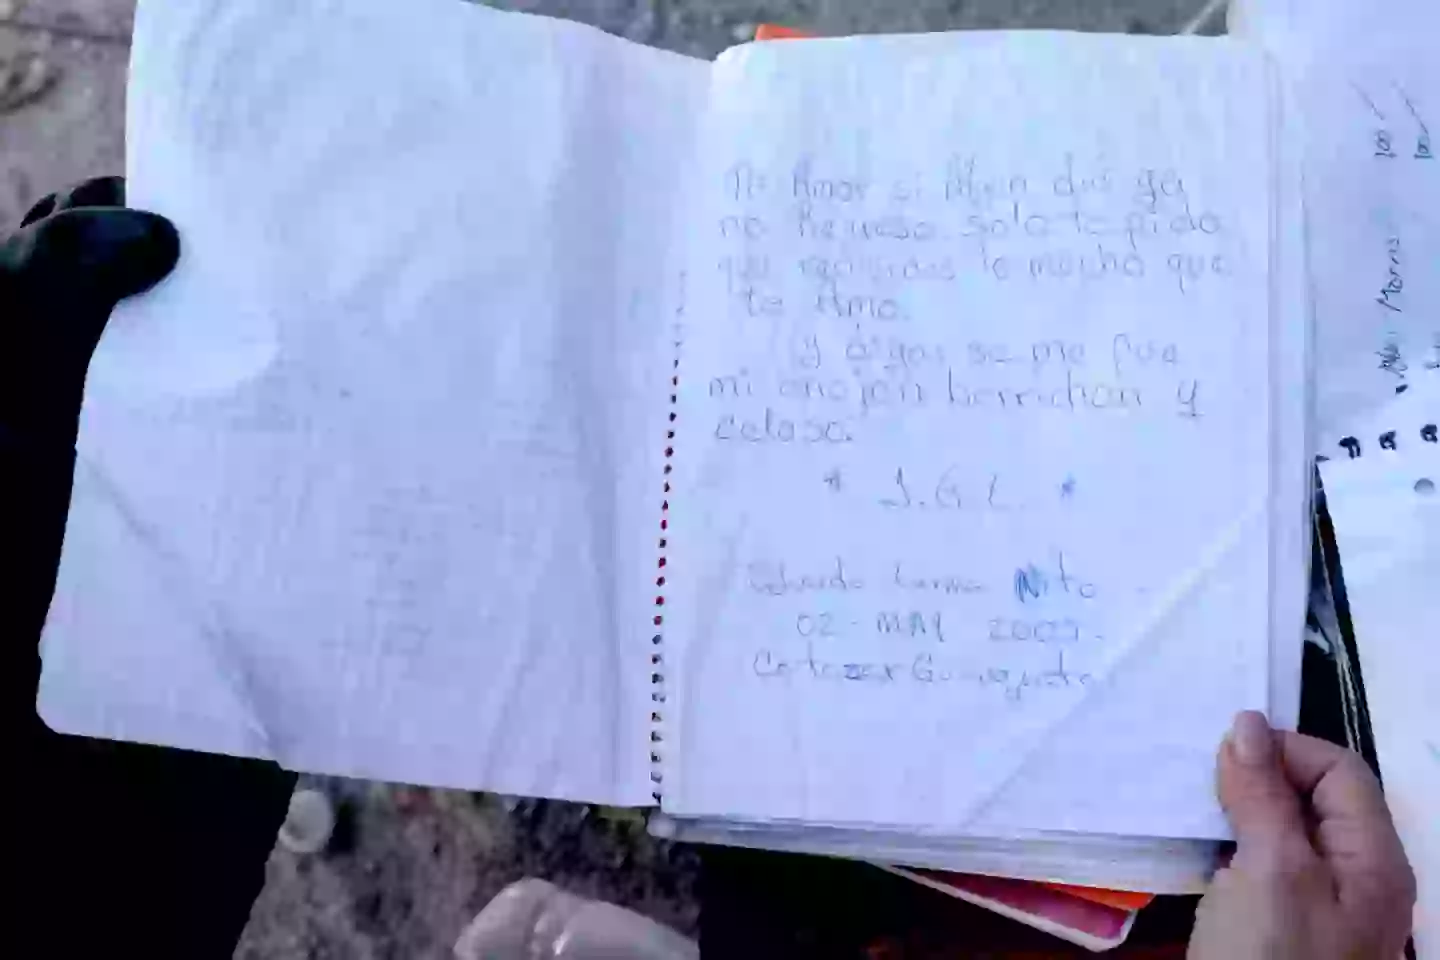 Mi Amor si Algun dia ya
no Regreso. solo te pido
que recuerdes lo mucho que
te Amo.
Y digas se me fue
mi enojon berrichon y
celoso.
* J.G.L. *
Eduardo Lerma Nito
02 - MAY 2009.
Cortazar Guanajuato
100
100
Morris